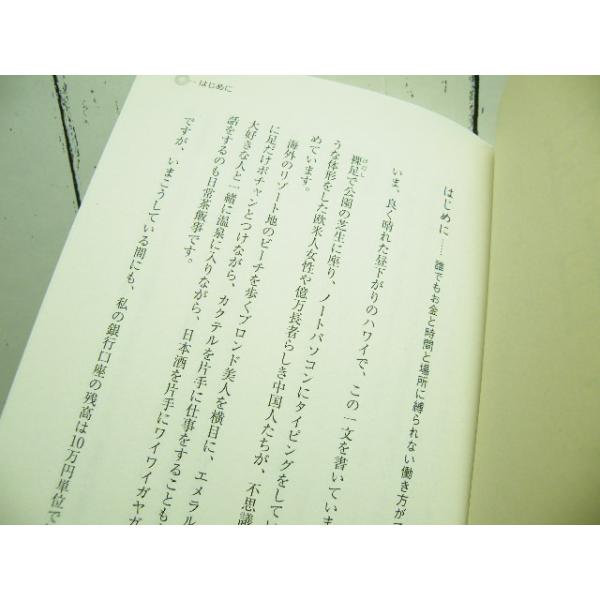 はじめに
はじめに……誰でもお金と時間と場所に縛られない働き方が
いま、良く晴れた昼下がりのハワイで、この一文を書いていま
裸足で公園の芝生に座り、ノートパソコンにタイピングをしてい
うな体形をした欧米人女性や億万長者らしき中国人たちが、不思議
めています。
海外のリゾート地のビーチを歩くブロンド美人を横目に、エメラル
に足だけポチャンとつけながら、カクテルを片手に仕事をすることも
大好きな人と一緒に温泉に入りながら、日本酒を片手にワイワイガヤガ
話をするのも日常茶飯事です。
ですが、いまこうしている間にも、私の銀行口座の残高は10万円単位で